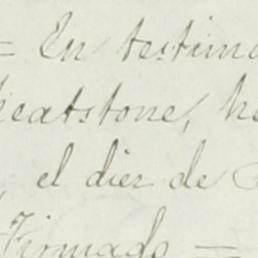 = En testimo
heatstone, he
, el diez de
Firmado =